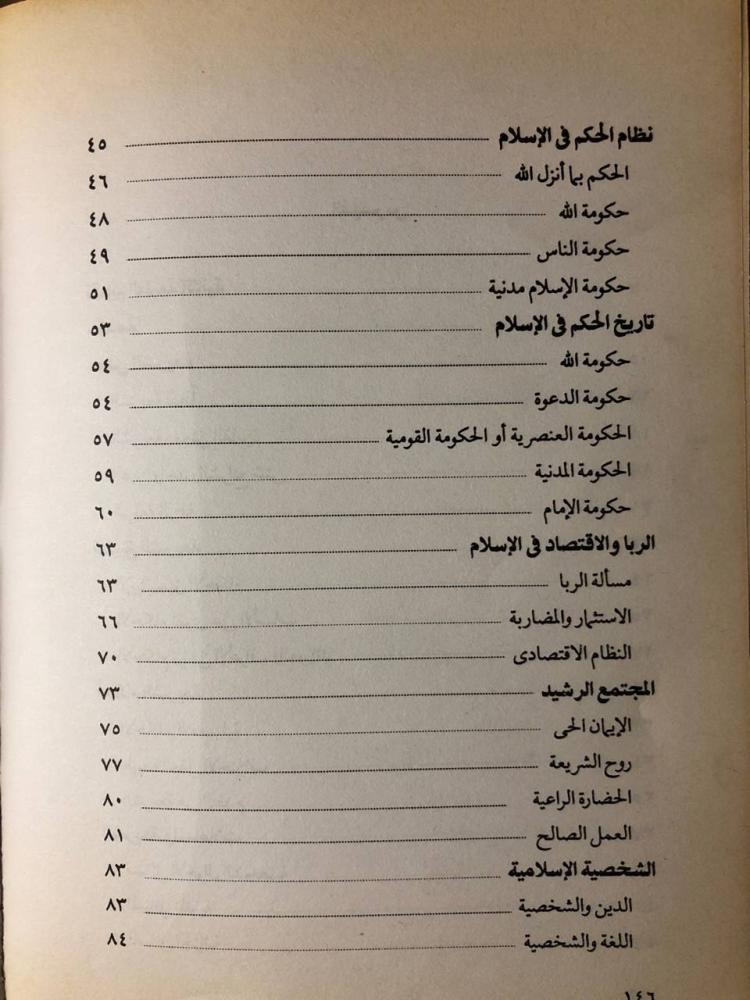 نظام الحكم فى الإسلام ٤٥
الحكم بما أنزل الله ٤٦
حكومة الله ٤٨
حكومة الناس ٤٩
حكومة الإسلام مدنية ٥١
تاريخ الحكم فى الإسلام ٥٣
حكومة الله ٥٤
حكومة الدعوة ٥٤
الحكومة العنصرية أو الحكومة القومية ٥٧
الحكومة المدنية ٥٩
حكومة الإمام ٦٠
الربا والاقتصاد فى الإسلام ٦٣
مسألة الربا ٦٣
الاستثمار والمضاربة ٦٦
النظام الاقتصادى ٧٠
المجتمع الرشيد ٧٣
الإيمان الحى ٧٥
روح الشريعة ٧٧
الحضارة الراعية ٨٠
العمل الصالح ٨١
الشخصية الإسلامية ٨٣
الدين والشخصية ٨٣
اللغة والشخصية ٨٤
١٤٦